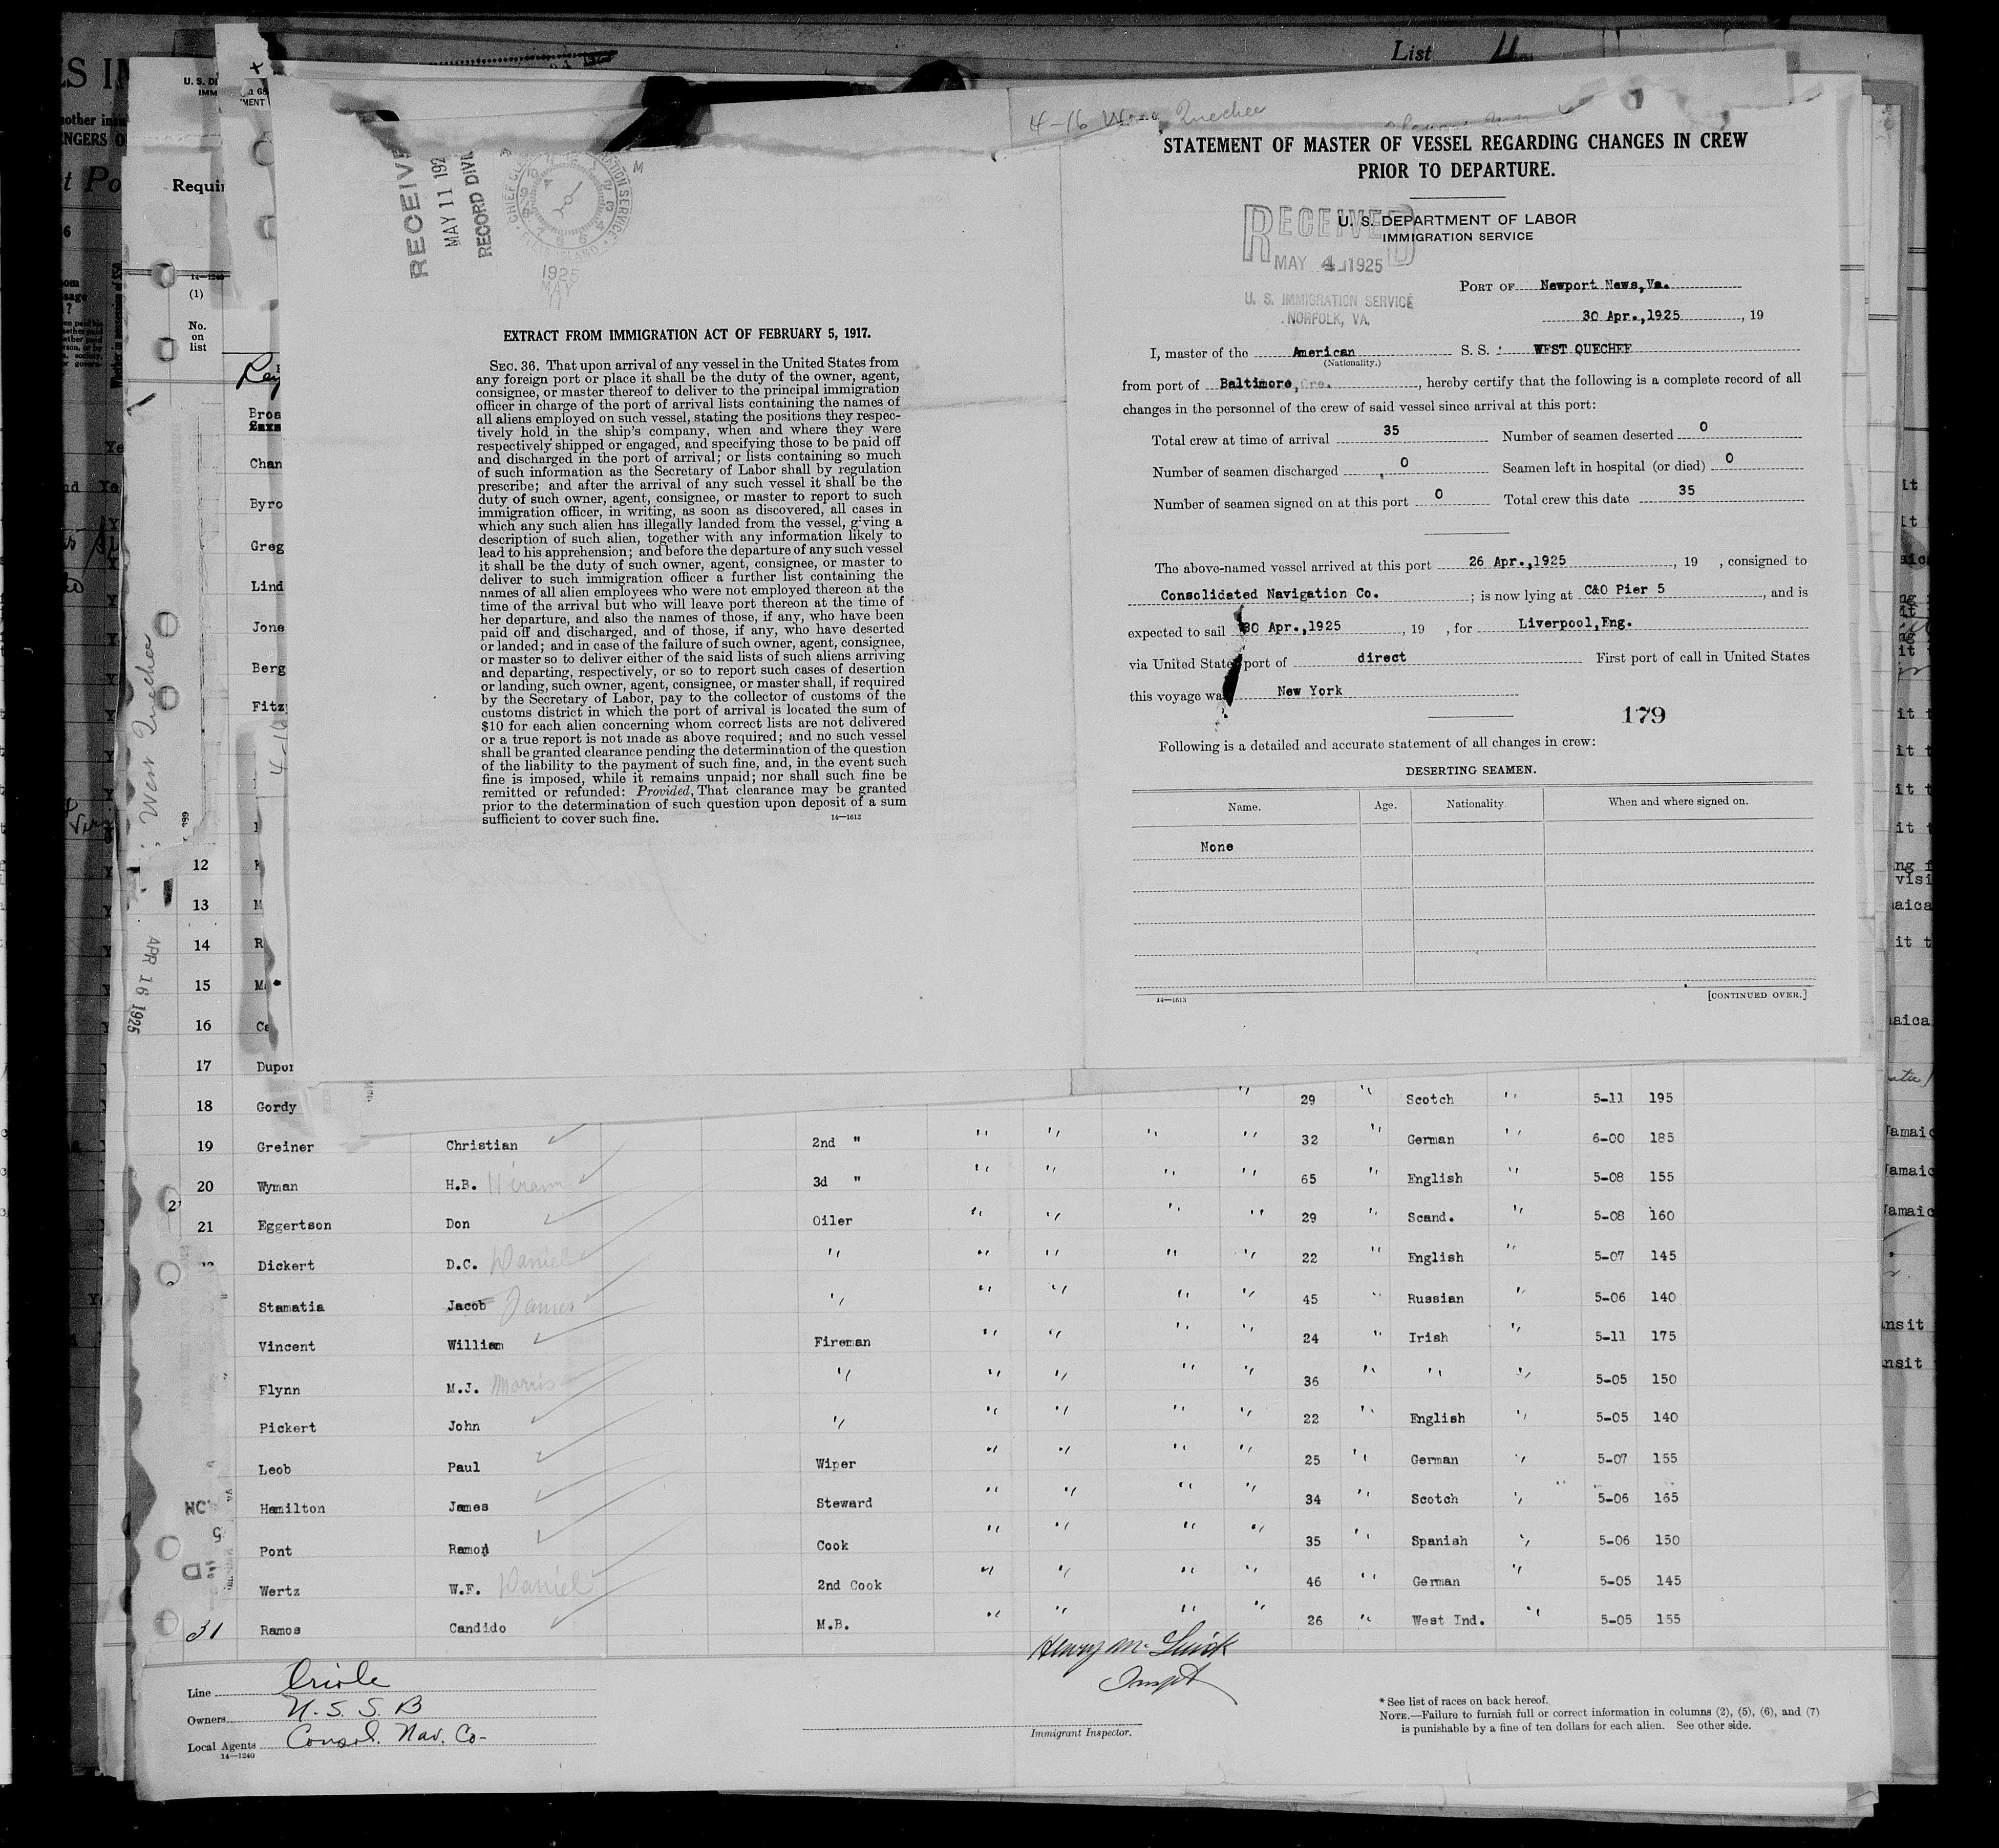 List
4-16 West Quechee
RECEIVE
MAY 11 192
RECORD DIVI
1925
MAY
11
EXTRACT FROM IMMIGRATION ACT OF FEBRUARY 5, 1917.
SEC. 36. That upon arrival of any vessel in the United States from
any foreign port or place it shall be the duty of the owner, agent,
consignee, or master thereof to deliver to the principal immigration
officer in charge of the port of arrival lists containing the names of
all aliens employed on such vessel, stating the positions they respec-
tively hold in the ship's company, when and where they were
respectively shipped or engaged, and specifying those to be paid off
and discharged in the port of arrival; or lists containing so much
of such information as the Secretary of Labor shall by regulation
prescribe; and after the arrival of any such vessel it shall be the
duty of such owner, agent, consignee, or master to report to such
immigration officer, in writing, as soon as discovered, all cases in
which any such alien has illegally landed from the vessel, giving a
description of such alien, together with any information likely to
lead to his apprehension; and before the departure of any such vessel
it shall be the duty of such owner, agent, consignee, or master to
deliver to such immigration officer a further list containing the
names of all alien employees who were not employed thereon at the
time of the arrival but who will leave port thereon at the time of
her departure, and also the names of those, if any, who have been
paid off and discharged, and of those, if any, who have deserted
or landed; and in case of the failure of such owner, agent, consignee,
or master so to deliver either of the said lists of such aliens arriving
and departing, respectively, or so to report such cases of desertion
or landing, such owner, agent, consignee, or master shall, if required
by the Secretary of Labor, pay to the collector of customs of the
customs district in which the port of arrival is located the sum of
$10 for each alien concerning whom correct lists are not delivered
or a true report is not made as above required; and no such vessel
shall be granted clearance pending the determination of the question
of the liability to the payment of such fine, and, in the event such
fine is imposed, while it remains unpaid; nor shall such fine be
remitted or refunded: Provided, That clearance may be granted
prior to the determination of such question upon deposit of a sum
sufficient to cover such fine.
14—1613
STATEMENT OF MASTER OF VESSEL REGARDING CHANGES IN CREW
PRIOR TO DEPARTURE.
U. S. DEPARTMENT OF LABOR
IMMIGRATION SERVICE
RECEIVED
MAY 4 1925
U. S. IMMIGRATION SERVICE
NORFOLK, VA.
PORT OF Newport News,Va.
30 Apr.,1925, 19
I, master of the American S. S. WEST QUECHEE
(Nationality.)
from port of Baltimore, Ore., hereby certify that the following is a complete record of all
changes in the personnel of the crew of said vessel since arrival at this port:
Total crew at time of arrival 35 Number of seamen deserted 0
Number of seamen discharged 0 Seamen left in hospital (or died) 0
Number of seamen signed on at this port 0 Total crew this date 35
The above-named vessel arrived at this port 26 Apr.,1925, 19 , consigned to
Consolidated Navigation Co. ; is now lying at C&O Pier 5, and is
expected to sail 30 Apr.,1925, 19 , for Liverpool,Eng.
via United States port of direct First port of call in United States
this voyage was New York
179
Following is a detailed and accurate statement of all changes in crew:
DESERTING SEAMEN.
Name. Age. Nationality When and where signed on.
None
14—1613 [CONTINUED OVER.]
Requir
14—1240
(1)
No.
on
list
Broa
Chan
Byro
Greg
Lind
Jone
Berg
Fitz
West Quechee
APR 16 1925
12
13 M
14 R
15 M
16 Ca
17 Dupo
18 Gordy 29 " Scotch " 5-11 195
19 Greiner Christian 2nd " " " " " 32 " German " 6-00 185
20 Wyman H.B. Hiram 3d " " " " " 65 " English " 5-08 155
21 Eggertson Don Oiler " " " " 29 " Scand. " 5-08 160
Dickert D.C. Daniel " " " " " 22 " English " 5-07 145
Stamatia Jacob James " " " " " 45 " Russian " 5-06 140
Vincent William Fireman " " " " 24 " Irish " 5-11 175
Flynn M.J. Morris " " " " " 36 " " " 5-05 150
Pickert John " " " " " 22 " English " 5-05 140
Leob Paul Wiper " " " " 25 " German " 5-07 155
Hamilton James Steward " " " " 34 " Scotch " 5-06 165
Pont Ramon Cook " " " " 35 " Spanish " 5-06 150
Wertz W.F. Daniel 2nd Cook " " " " 46 " German " 5-05 145
31 Ramos Candido M.B. " " " " 26 " West Ind. " 5-05 155
Line Oriole
Owners U.S.S.B
Local Agents Consol. Nav. Co-
14—1240
Immigrant Inspector.
* See list of races on back hereof.
NOTE.—Failure to furnish full or correct information in columns (2), (5), (6), and (7)
is punishable by a fine of ten dollars for each alien. See other side.